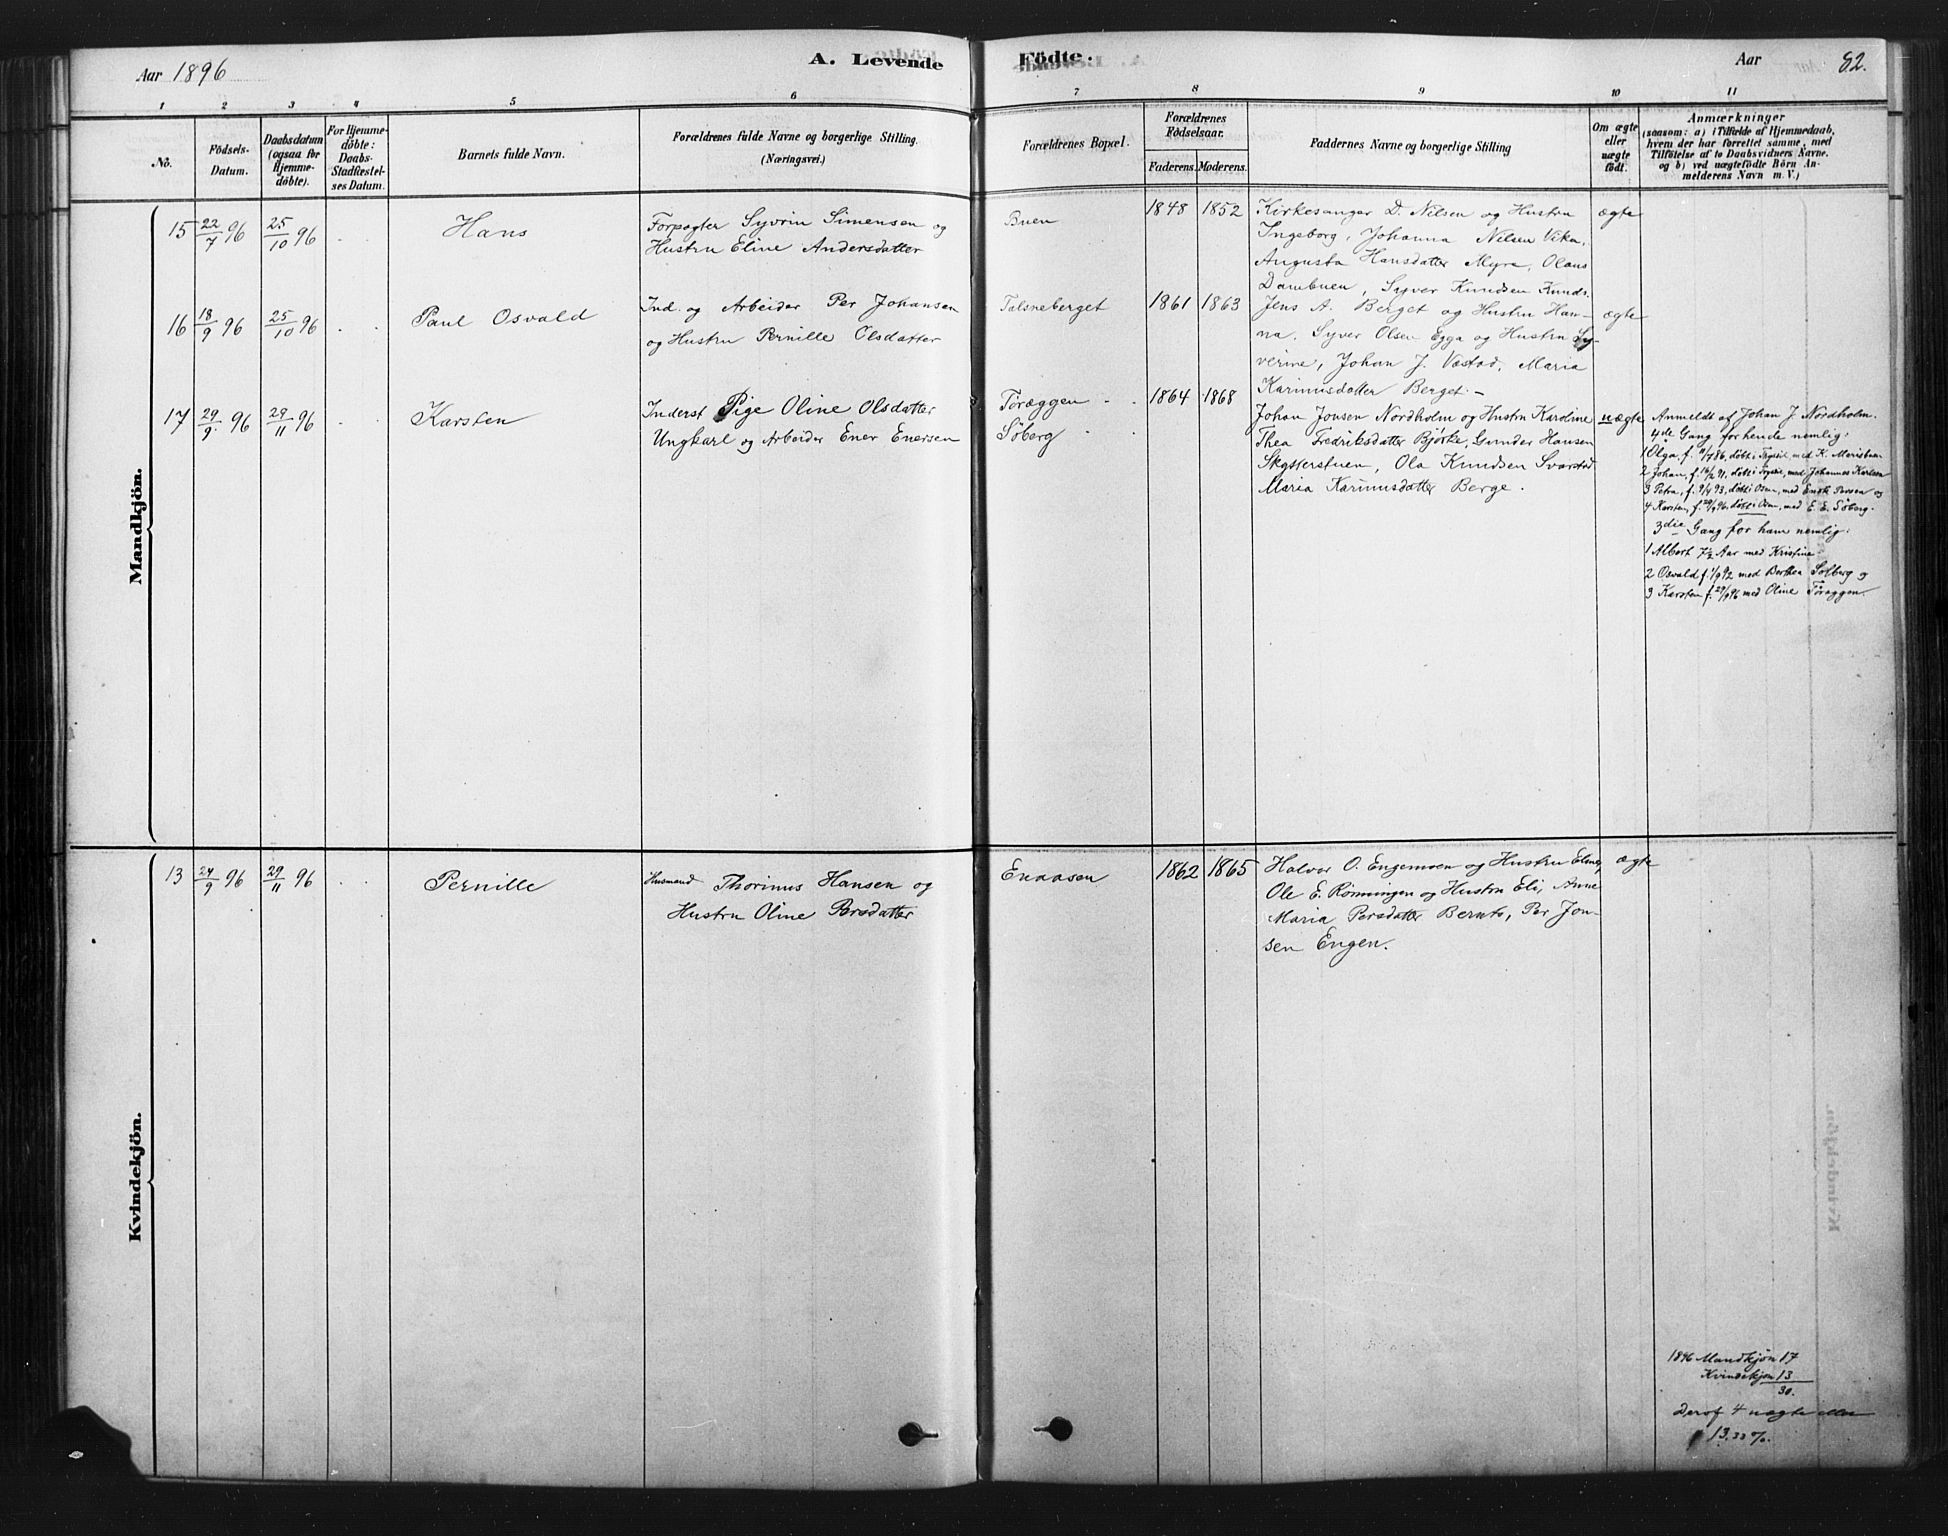 Aar 1896
A. Levende
Födte.
Aar
82.
1 2 3 4 5 6 7 8 9 10 11
No.
Födsels-
Datum.
Daabsdatum
(ogsaa for
Hjemme-
döbte).
For Hjemme-
döbte:
Daabs-
Stadfæstel-
ses Datum.
Barnets fulde Navn.
Forældrenes fulde Navne og borgerlige Stilling.
(Næringsvei.)
Forældrenes Bopæl.
Forældrenes
Födselsaar.
Faderens. Moderens.
Faddernes Navne og borgerlige Stilling
Om ægte
eller
uægte
födt.
Anmærkninger
(saasom: a) i Tilfælde af Hjemmedaab,
hvem der har forrettet samme, med
Tilföielse af to Daabsvidners Navne.
og b) ved uægtefödte Börn An-
melderens Navn m. V.)
Mandkjön.
15 22/7 96 25/10 96 Hans
Forpagter Syvrin Simensen og
Hustru Eline Andersdatter
Buen 1848 1852
Kirkesanger D. Nilsen og Hustru
Ingeborg, Johanna Nilsen Vika,
Augusta Hansdatter Myra, Olaus
Dambuen, Syver Knudsen Knuds.
ægte
16 18/9 96 25/10 96 Paul Osvald
Ind. og Arbeider Per Johansen
og Hustru Pernille Olsdatter
Talsneberget 1861 1863
Jens A. Berget og Hustru Han-
na, Syver Olsen Egga og Hustru Sy-
verine, Johan J. Væstad, Maria
Karinusdatter Berget. -
ægte
17 29/9 96 29/11 96 Karsten
Inderst Pige Oline Olsdatter
Ungkarl og Arbeider Ener Enersen
Töræggen
Söberg
1864 1868
Johan Jonsen Nordholm og Hustru Karoline
Thea Fredriksdatter Björke, Gunder Hansen
Skytterstuen, Ola Knudsen Svarstad
Maria Karinusdatter Berge.
uægte
Anmeldt af Johan J. Nordholm.
4de Gang for hende nemlig:
1 Olga, f. 86, döbt i Trysil, med K. Marisbuen
2 Johan, f. 91, döbt i Trysil, med Johannes Karlsen
3 Petra, f. 93, döbt i Osen, med Enok Persen og
4 Karsten, f. 29/9 96, döbt i Osen, med E. E. Söberg.
3die Gang for ham nemlig:
1 Albert 7½ Aar med Kristine
2 Osvald f. 1/9 92 med Berthea Solberg og
3 Karsten f. 29/9 96 med Oline Töræggen.
Kvindekjön.
13 24/9 96 29/11 96 Pernille
Husmand Thorinus Hansen og
Hustru Oline Persdatter
Enaasen 1862 1865
Halvor O. Engemoen og Hustru Eline,
Ole E. Rönningen og Hustru Eli, Anne
Maria Persdatter Bernts, Per Jon-
sen Engen.
ægte
1896 Mandkjön 17
Kvindekjön 13
30.
Deraf 4 uægte eller
13.33 %.